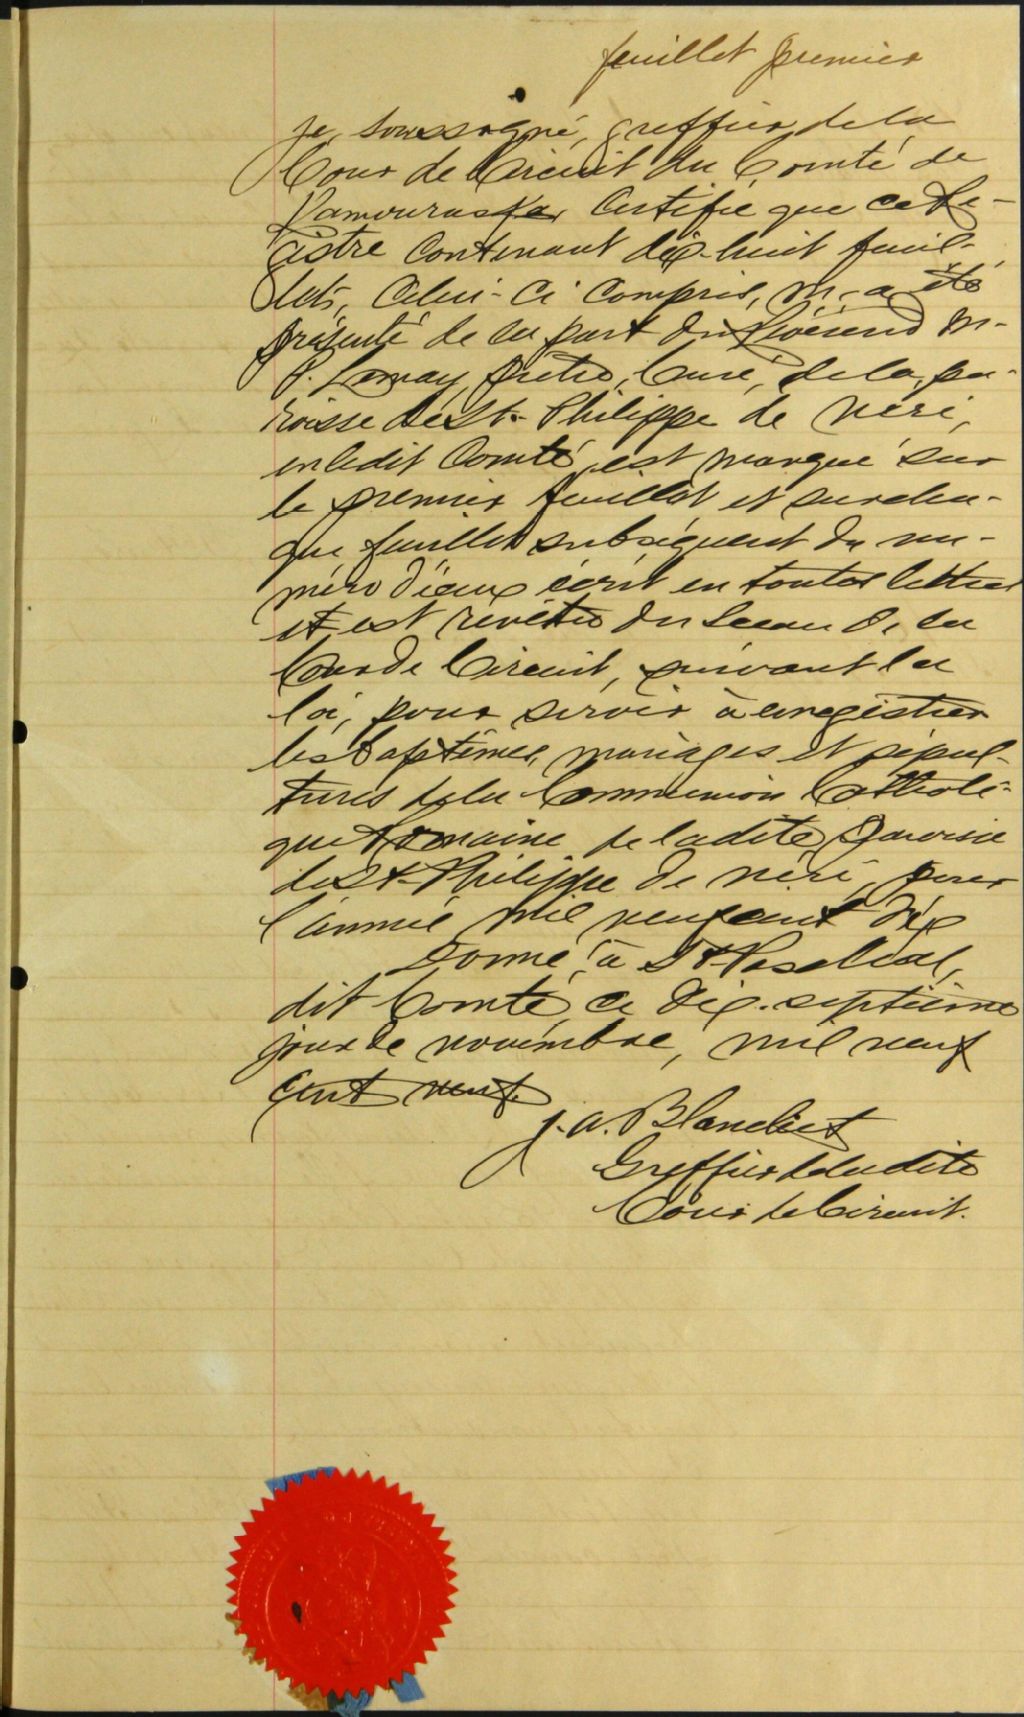 feuillet premier
je, soussigné, greffier de la
Cour de Circuit du Comté de
Kamouraska, Certifie que ce Re-
gistre contenant dix-huit feuil-
lets, celui-ci compris, m'a été
présenté de la part du Révérend M.
prêtre, Curé, de la pa-
roisse de St-Philippe de Néri,
en ledit Comté, est marqué sur
le premier feuillet et sur cha-
que feuillet subséquent du nu-
méro d'iceux écrit en toutes lettres
et est revêtu du Sceau de la
Cour de Circuit, suivant la
loi, pour servir à enregistrer
les baptêmes, mariages et sépul-
tures de la Communion Catholi-
que Romaine de ladite Paroisse
de St-Philippe de Néri, pour
l'année mil neuf cent dix
Donné à St Paschal,
dit Comté, ce dix-septième
jour de novembre, mil neuf
cent neuf.
J. A. Blanchet
Greffier de ladite
Cour de Circuit.